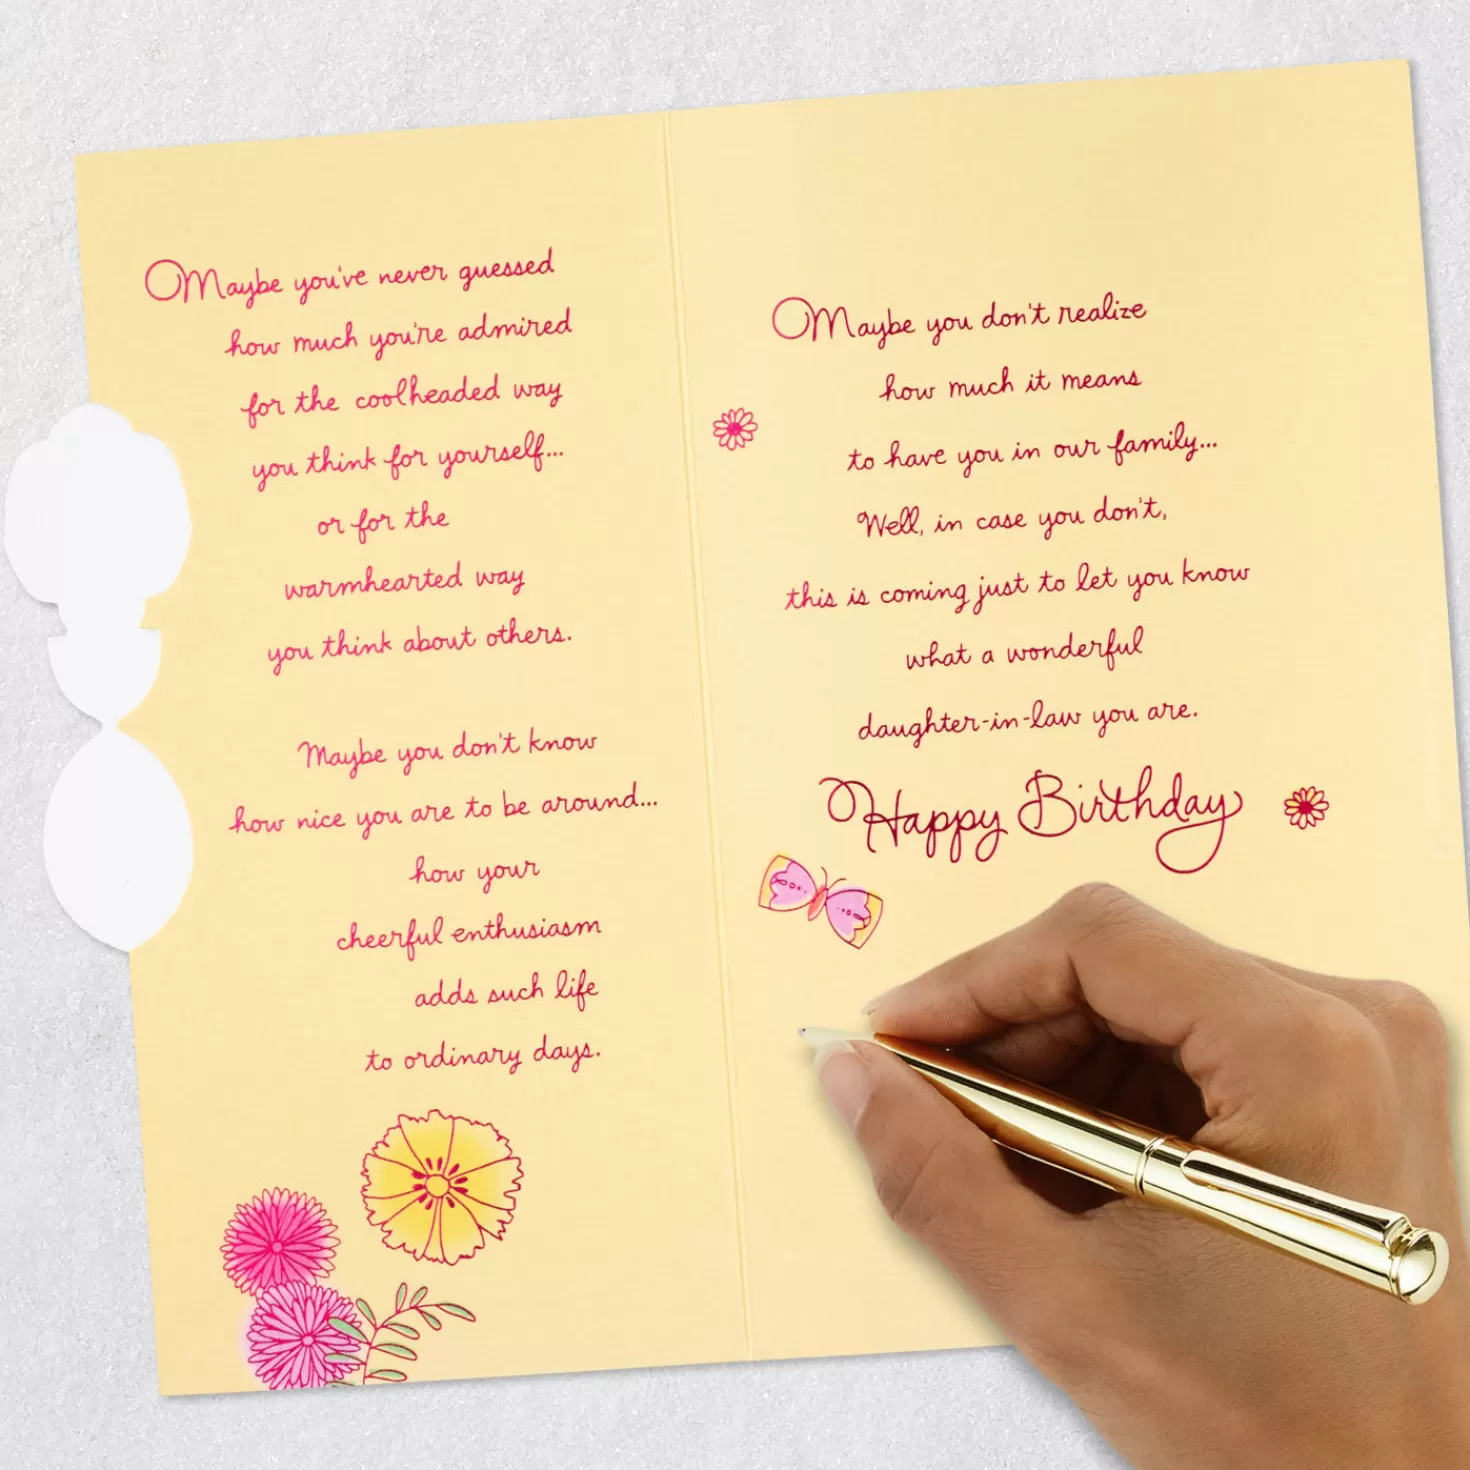 Maybe you've never guessed
how much you're admired
for the coolheaded way
you think for yourself...
or for the
warmhearted way
you think about others.
Maybe you don't know
how nice you are to be around...
how your
cheerful enthusiasm
adds such life
to ordinary days.
Maybe you don't realize
how much it means
to have you in our family...
Well, in case you don't,
this is coming just to let you know
what a wonderful
daughter-in-law you are.
Happy Birthday